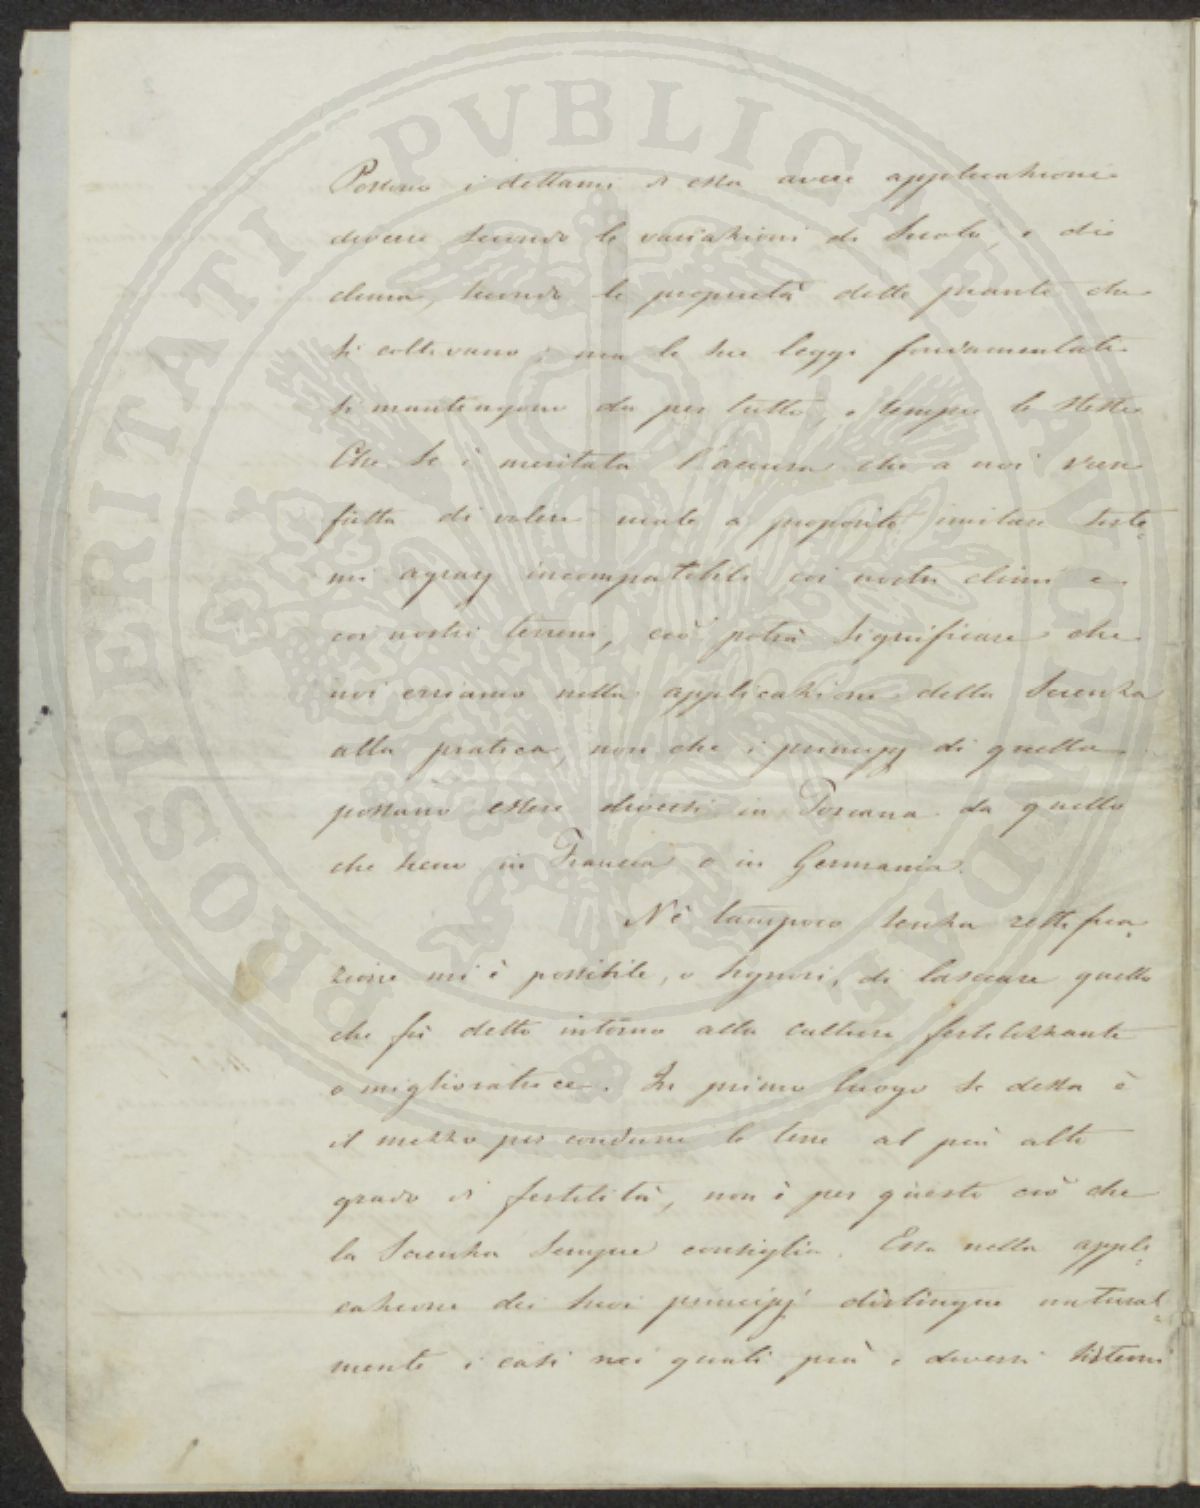 PROSPERITATI PVBLICAE AVGENDAE
Possono i dettami di essa avere applicazioni
diverse secondo le variazioni di suolo, e di
clima, secondo le proprietà delle piante che
si coltivano; ma le sue leggi fondamentali
si mantengono da per tutto, e sempre le stesse
Che se è meritata l'accusa che a noi vien
fatta di volere male a proposito imitare siste
mi agrarj incompatibili coi nostri climi e
coi nostri terreni, ciò potrà significare che
noi erriamo nella applicazione della Scienza
alla pratica, non che i principj di quella
possano essere diversi in Toscana da quello
che sieno in Francia o in Germania.
Nè tampoco senza rettifica
zione mi è possibile, o Signori, di lasciare quello
che fù detto intorno alla cultura fertilizzante
o miglioratrice. In primo luogo se dessa è
il mezzo per condurre le terre al più alto
grado di fertilità, non è per questo ciò che
la Scienza sempre consiglia. Essa nella appli
cazione dei suoi principj distingue natural
mente i casi nei quali più e diversi sistemi